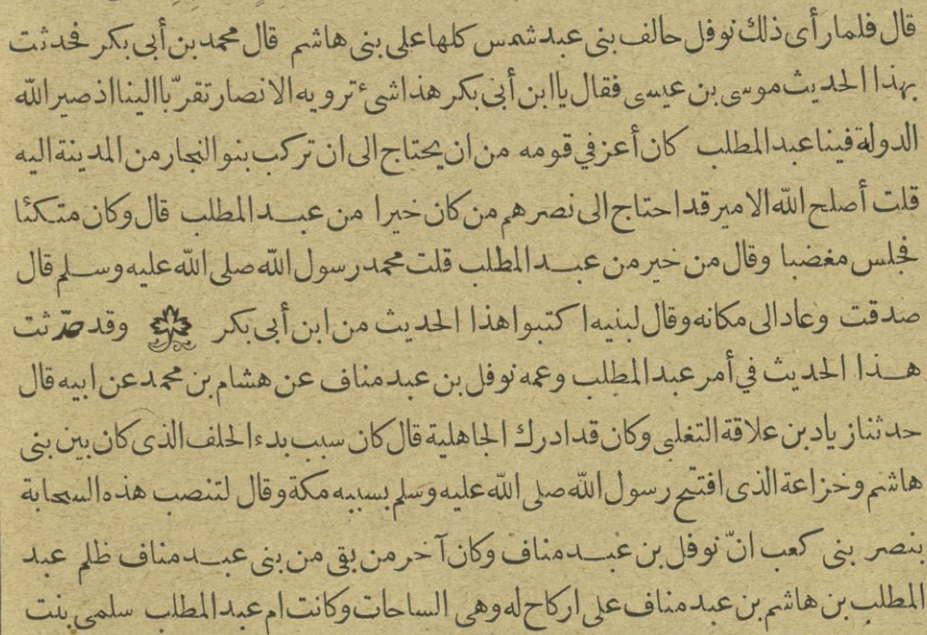 قال فلما رأى ذلك نوفل حالف بنى عبد شمس كلها على بنى هاشم قال محمد بن أبى بكر فحدثت
بهذا الحديث موسى بن عيسى فقال يا ابن أبى بكر هذا شئ ترويه الانصار تقرّبا الينا اذ صير الله
الدولة فينا عبد المطلب كان أعز في قومه من ان يحتاج الى ان تركب بنو النجار من المدينة اليه
قلت أصلح الله الامير قد احتاج الى نصرهم من كان خيرا من عبد المطلب قال وكان متكئا
فجلس مغضبا وقال من خير من عبد المطلب قلت محمد رسول الله صلى الله عليه وسلم قال
صدقت وعاد الى مكانه وقال لبنيه اكتبوا هذا الحديث من ابن أبى بكر وقد حدّثت
هذا الحديث في أمر عبد المطلب وعمه نوفل بن عبد مناف عن هشام بن محمد عن ابيه قال
حدثنا زياد بن علاقة التغلبى وكان قد ادرك الجاهلية قال كان سبب بدء الحلف الذى كان بين بنى
هاشم وخزاعة الذى افتتح رسول الله صلى الله عليه وسلم بسببه مكة وقال لتنصب هذه السحابة
بنصر بنى كعب انّ نوفل بن عبد مناف وكان آخر من بقى من بنى عبد مناف ظلم عبد
المطلب بن هاشم بن عبد مناف على اركاح له وهى الساحات وكانت ام عبد المطلب سلمى بنت